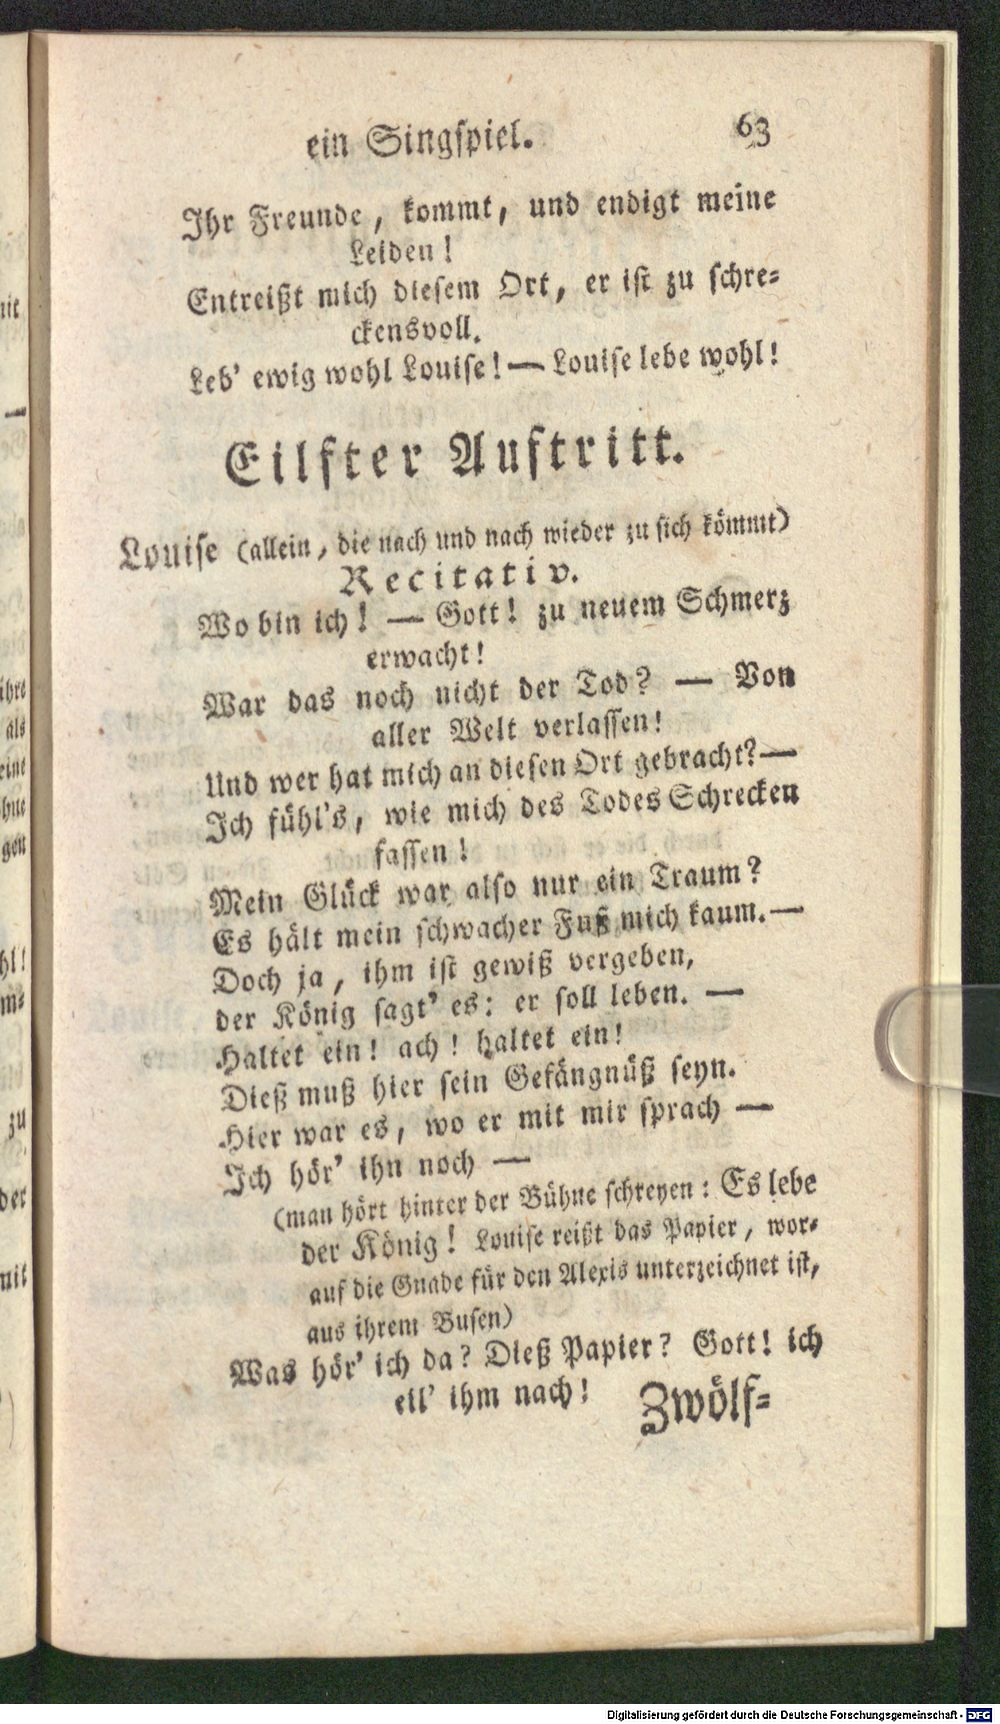 ein Singſpiel. 63
Ihr Freunde, kommt, und endigt meine
Leiden!
Entreißt mich dieſem Ort, er iſt zu ſchre-
ckensvoll.
Leb' ewig wohl Louiſe! — Louiſe lebe wohl!
Eilfter Auftritt.
Louiſe (allein, die nach und nach wieder zu ſich kömmt)
Recitativ.
Wo bin ich! — Gott! zu neuem Schmerz
erwacht!
War das noch nicht der Tod? — Von
aller Welt verlaſſen!
Und wer hat mich an dieſen Ort gebracht? —
Ich fühl's, wie mich des Todes Schrecken
faſſen!
Mein Glück war alſo nur ein Traum?
Es hält mein ſchwacher Fuß mich kaum. —
Doch ja, ihm iſt gewiß vergeben,
der König ſagt' es: er ſoll leben. —
Haltet ein! ach! haltet ein!
Dieß muß hier ſein Gefängnüß ſeyn.
Hier war es, wo er mit mir ſprach —
Ich hör' ihn noch —
(man hört hinter der Bühne ſchreyen: Es lebe
der König! Louiſe reißt das Papier, wor-
auf die Gnade für den Alexis unterzeichnet iſt,
aus ihrem Buſen)
Was hör' ich da? Dieß Papier? Gott! ich
eil' ihm nach!
Zwölf-
Digitalisierung gefördert durch die Deutsche Forschungsgemeinschaft - DFG